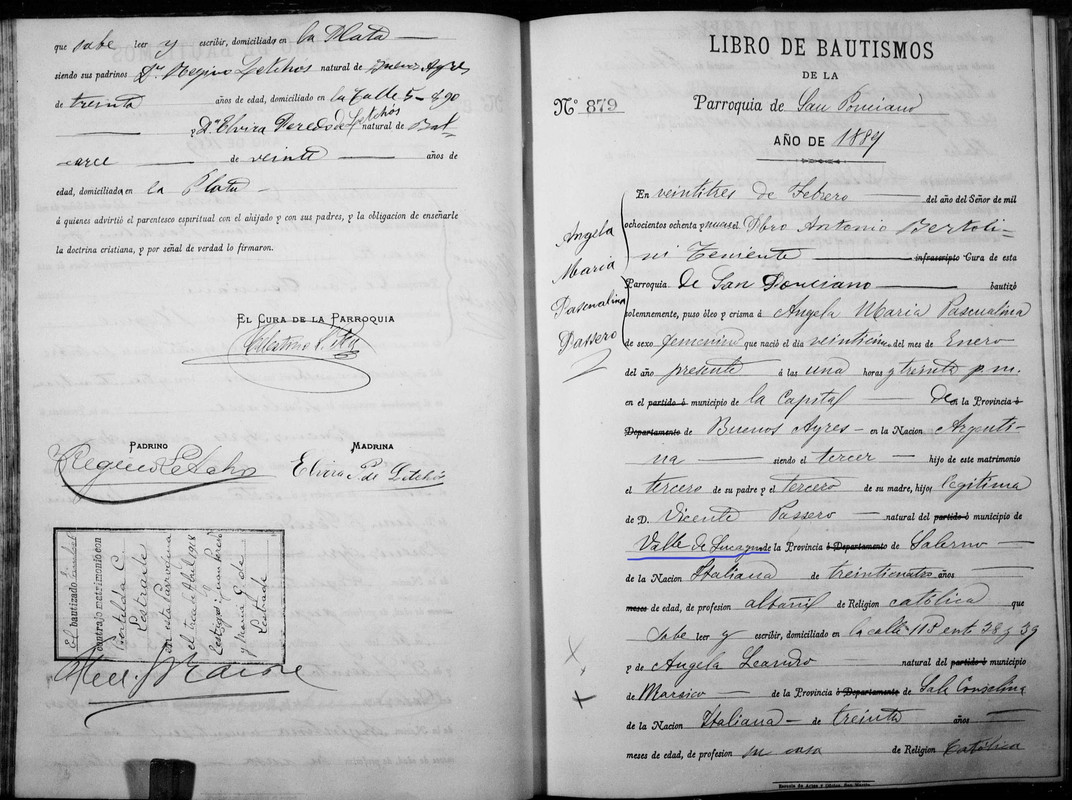 que sabe leer y escribir, domiciliado en la Plata
siendo sus padrinos Dn Regino Letchós natural de Buenos Ayres
de treinta años de edad, domiciliado en la Calle 5 - 890
y Da Elvira Peredo de Letchós natural de Bal-
carce de veinte años de
edad, domiciliada en la Plata
á quienes advirtió el parentesco espiritual con el ahijado y con sus padres, y la obligacion de enseñarle
la doctrina cristiana, y por señal de verdad lo firmaron.
EL CURA DE LA PARROQUIA
PADRINO
MADRINA
Regino Letchós
Elvira P. de Letchós
El bautizado
contrajo matrimonio con
Clotilde C.
en esta Parroquia
el de Abril 1918
Testigos
y Maria G. de
LIBRO DE BAUTISMOS
DE LA
No 879
Parroquia de San Ponciano
AÑO DE 1889
Angela
Maria
Pascualina
Passero
En veintitres de Febrero del año del Señor de mil
ochocientos ochenta y nueve el Pbro Antonio Bertoli-
ni Teniente infrascripto Cura de esta
Parroquia de San Ponciano bautizó
solemnemente, puso óleo y crisma á Angela Maria Pascualina
de sexo femenino que nació el dia del mes de Enero
del año presente á las una horas y treinta p.m.
en el partido ó municipio de la Capital de la Provincia ó
Departamento de Buenos Ayres en la Nacion Argenti-
na siendo el tercer hijo de este matrimonio
el tercero de su padre y el tercero de su madre, hijo legitima
de D. Vicente Passero natural del partido ó municipio de
Valle de de la Provincia ó Departamento de Salerno
de la Nacion Italiana de treinticuatro años
meses de edad, de profesion albañil de Religion católica que
sabe leer y escribir, domiciliado en la calle 115 ent 38 y 39
y de Angela Leandro natural del partido ó municipio
de Marsico de la Provincia ó Departamento de Sala Consilina
de la Nacion Italiana de treinta años
meses de edad, de profesion su casa de Religion Católica
Escuela de Artes y Oficios, San Martin